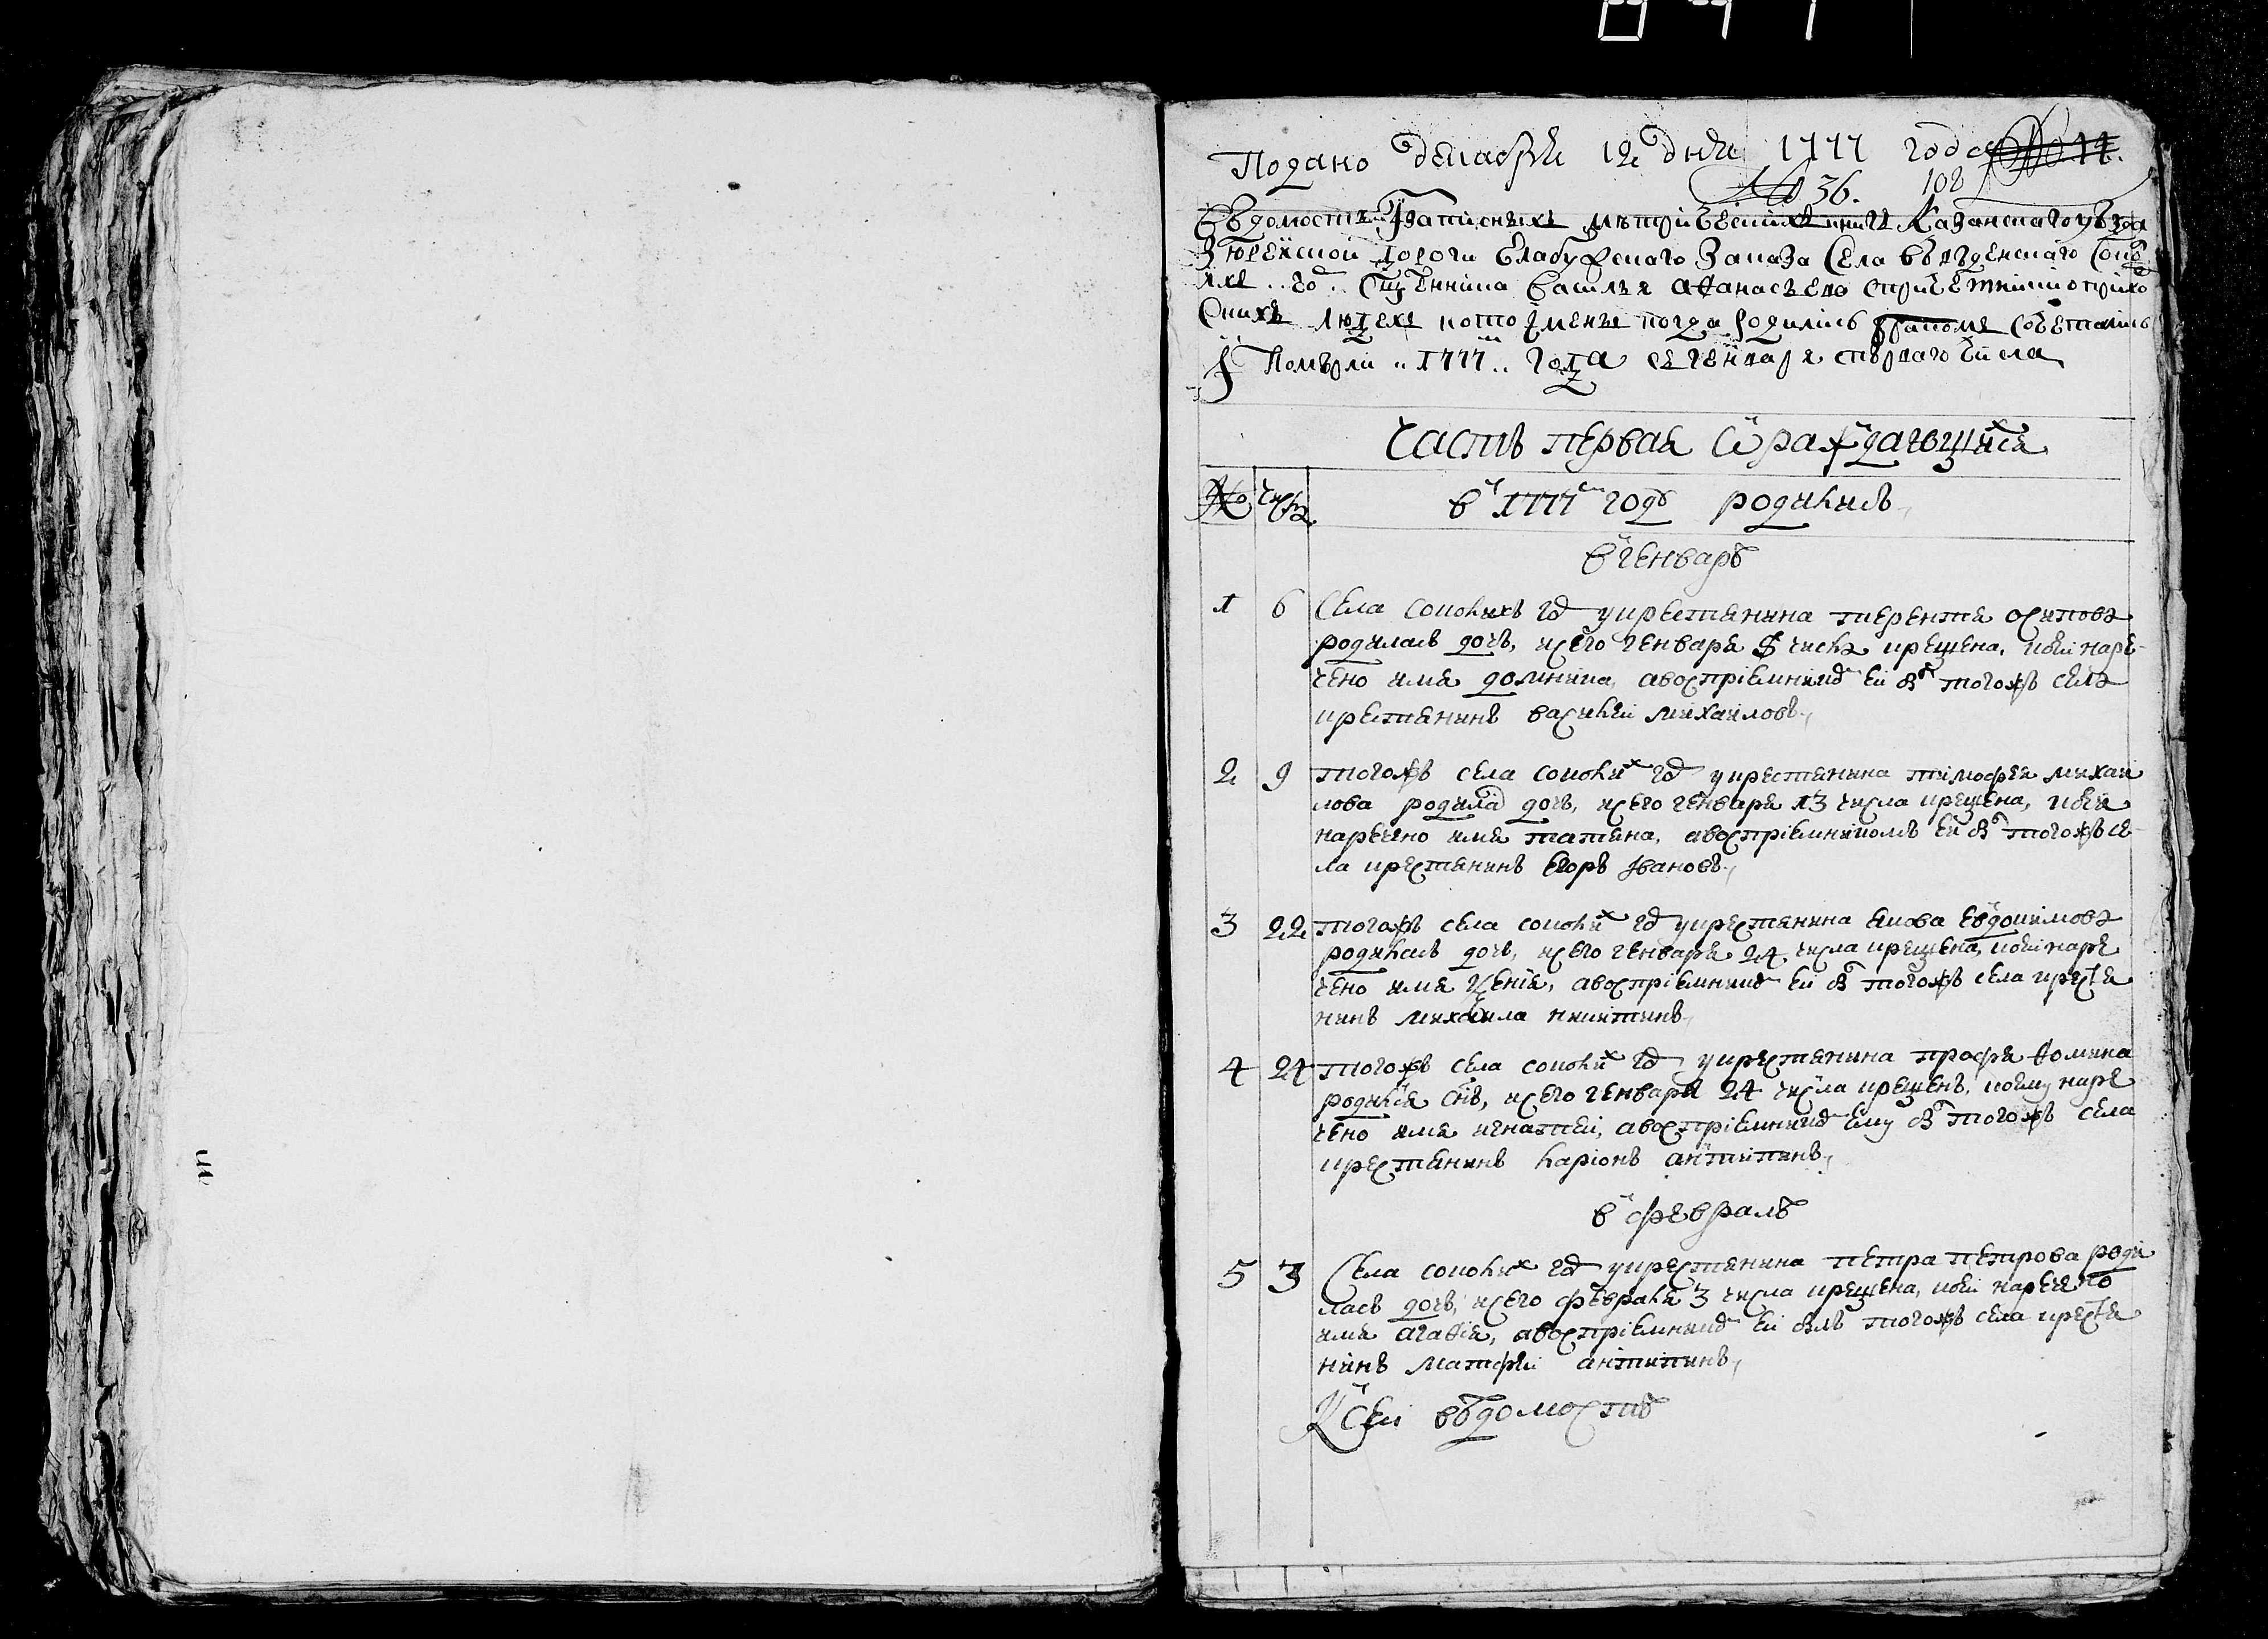 Подано декабря 12 дня 1777 года
№ 36. 108
Ведомость записныхъ метрическихъ книгъ Казанскаго уезда
Зюрейской дороги Елабужскаго Заказа Села Введенскаго Соко
льи горы Священника василья афанасьева спричетники оприхо
Снихъ людехъ кто имены когда родились бракомъ сочетались
Померли 1777 года съ генваря сперваго числа
Часть первая о раждающихся
№ числа в 1777м годѣ родились
в генварѣ
1 6 Села соколихъ гор у крестьянина терентья осипова
родилась дочь, исего генваря числа крещена, и ей наре
чено имя домника, авосприемником ей былъ тогожъ села
крестьянинъ василей михайловъ
2 9 тогожъ села соколих гор у крестьянина тимофея михай
лова родилас дочь, исего генваря 13 числа крещена, и ей
наречено имя татьяна, авосприемникомъ ей былъ тогожъ се
ла крестьянинъ Егоръ Ивановъ
3 22 тогожъ села соколих гор у крестьянина якова Евдокимова
родилась дочь, исего генваря 24 числа крещена, и ей наре
чено имя ксения, авосприемником ей былъ тогожъ села кресть
янинъ михайла никитинъ
4 24 тогожъ села соколих гор у крестьянина трофима фомина
родился снъ, исего генваря 24 числа крещенъ, и ему наре
чено имя игнатей, авосприемником ему былъ тогожъ села
крестьянинъ ларионъ антипинъ
в февралѣ
5 3 Села соколих гор у крестьянина петра петрова роди
лась дочь, исего февраля 3 числа крещена, и ей наречено
имя агафия, авосприемником ей былъ тогожъ села кресть
янинъ матфей антипинъ
К сей вѣдомостѣ